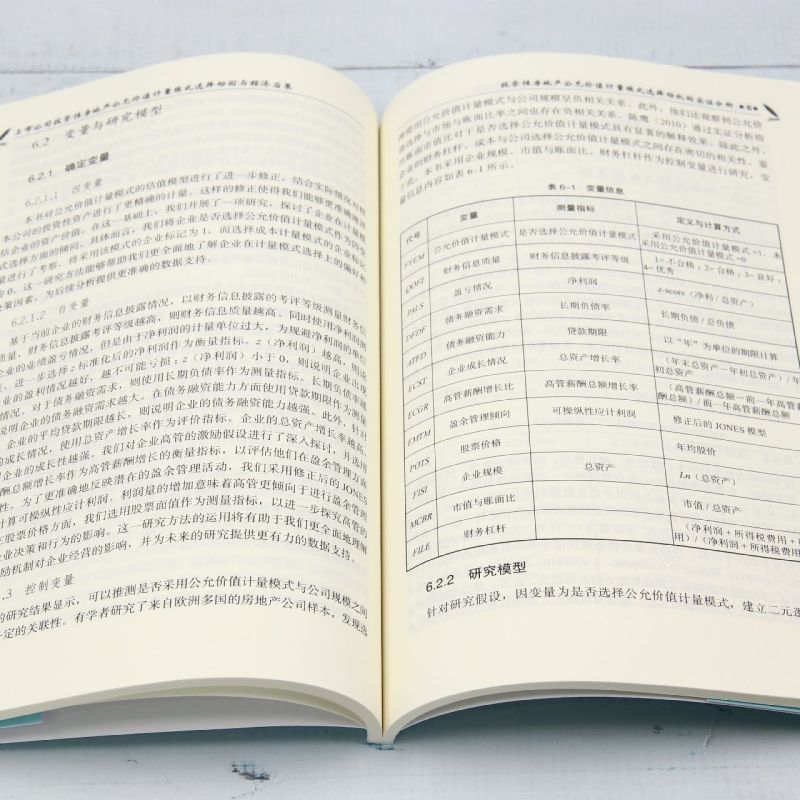 上市公司投资性房地产公允价值计量模式选择动因与经济后果
6.2 变量与研究模型
6.2.1 确定变量
6.2.1.1 因变量
本书对公允价值计量模式的估值模型进行了进一步修正，结合实际情况对样
本公司的投资性资产进行了更精确的计量。这样的修正使得我们能够更准确地评
估企业的资产价值。在这一基础上，我们开展了一项研究，探讨了企业在计量模
式选择方面的倾向。具体而言，我们将企业是否选择公允价值计量模式作为因变
量进行了考察，将采用该模式的企业标记为1，而选择成本计量模式的企业标记
为0。这一研究方法能够帮助我们更全面地了解企业在计量模式选择上的偏好和
决策因素，为后续分析提供更准确的数据支持。
6.2.1.2 自变量
基于当前企业的财务信息披露情况，以财务信息披露的考评等级测量财务信
质量，财务信息披露考评等级越高，则财务信息质量越高。同时使用净利润测
企业的业绩盈亏情况，但是由于净利润的计量单位过大，为规避净利润的单位
，进一步选择z标准化后的净利润作为衡量指标。z（净利润）越高，则说
企业的盈利情况越好，越不可能亏损；z（净利润）小于0，则说明企业出现
情况。对于债务融资需求，则使用长期负债率作为测量指标。长期负债率越
说明企业的债务融资需求越大。在债务融资能力方面使用贷款期限作为测量
，企业的平均贷款期限越长，则说明企业的债务融资能力越强。此外，针对
的成长情况，使用总资产增长率作为评价指标。企业的总资产增长率越高，
企业的成长性越强。我们对企业高管的激励假设进行了深入探讨，并选用
酬总额增长率作为高管薪酬增长的衡量指标，以评估他们在盈余管理方面
性。为了更准确地反映潜在的盈余管理活动，我们采用修正后的JONES
计算可操纵性应计利润。利润量的增加意味着高管更倾向于进行盈余管理
在股票价格方面，我们选用股票面值作为测量指标，以进一步探究高管的
业决策和行为的影响。这一研究方法的运用将有助于我们更全面地理解
励机制对企业经营的影响，并为未来的研究提供更有力的数据支持。
.3 控制变量
的研究结果显示，可以推测是否采用公允价值计量模式与公司规模之间
一定的关联性。有学者研究了来自欧洲多国的房地产公司样本，发现选
投资性房地产公允价值计量模式选择动机的实证分析 6
择使用公允价值计量模式与公司规模呈负相关关系。此外，他们还观察到公允价
值选择与市场与账面比率之间也存在负相关关系。陈鹰（2016）通过实证分析指
出账面市值比对于是否选择公允价值计量模式具有显著的解释效果。除此之外，
企业的财务杠杆、成本与公司选择公允价值计量模式之间存在密切的相关性。鉴
于此，本书采用企业规模、市值与账面比、财务杠杆作为控制变量进行研究，变
量信息内容如表6-1所示。
表6-1 变量信息
代号 变量 测量指标 定义与计算方式
FVEM 公允价值计量模式 是否选择公允价值计量模式 采用公允价值计量模式=1，未采用公允价值计量模式=0
QOFI 财务信息质量 财务信息披露考评等级 1=不合格；2=合格；3=良好；4=优秀
PALS 盈亏情况 净利润 z-score（净利/总资产）
DFDF 债务融资需求 长期负债率 长期负债/总负债
ATFD 债务融资能力 贷款期限 以“年”为单位的期限计算
ECST 企业成长情况 总资产增长率 （年末总资产－年初总资产）/年初总资产
ECGR 高管薪酬增长比 高管薪酬总额增长率 （高管薪酬总额－前一年高管薪酬总额）/前一年高管薪酬总额
EMTM 盈余管理倾向 可操纵性应计利润 修正后的JONES模型
POTS 股票价格 年均股价
FISI 企业规模 总资产 Ln（总资产）
MCBR 市值与账面比 市值/总资产
FILE 财务杠杆 （净利润+所得税费用+财 用）/（净利润+所得税费用
6.2.2 研究模型
针对研究假设，因变量为是否选择公允价值计量模式，建立二元逻